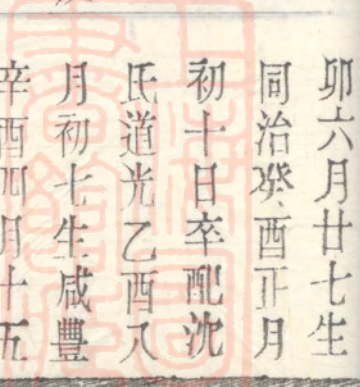 卯六月廿七生
同治癸酉正月
初十日卒配沈
氏道光乙酉八
月初七生咸豐
辛酉四月十五